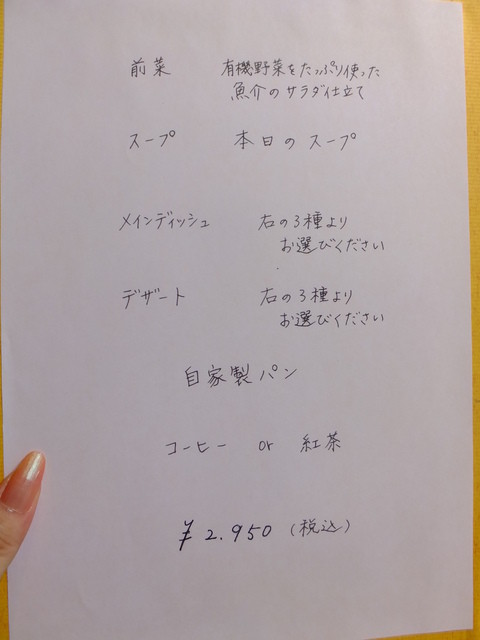 前菜 有機野菜をたっぷり使った
魚介のサラダ仕立て
スープ 本日のスープ
メインディッシュ 右の3種より
お選びください
デザート 右の3種より
お選びください
自家製パン
コーヒー or 紅茶
¥2.950（税込）